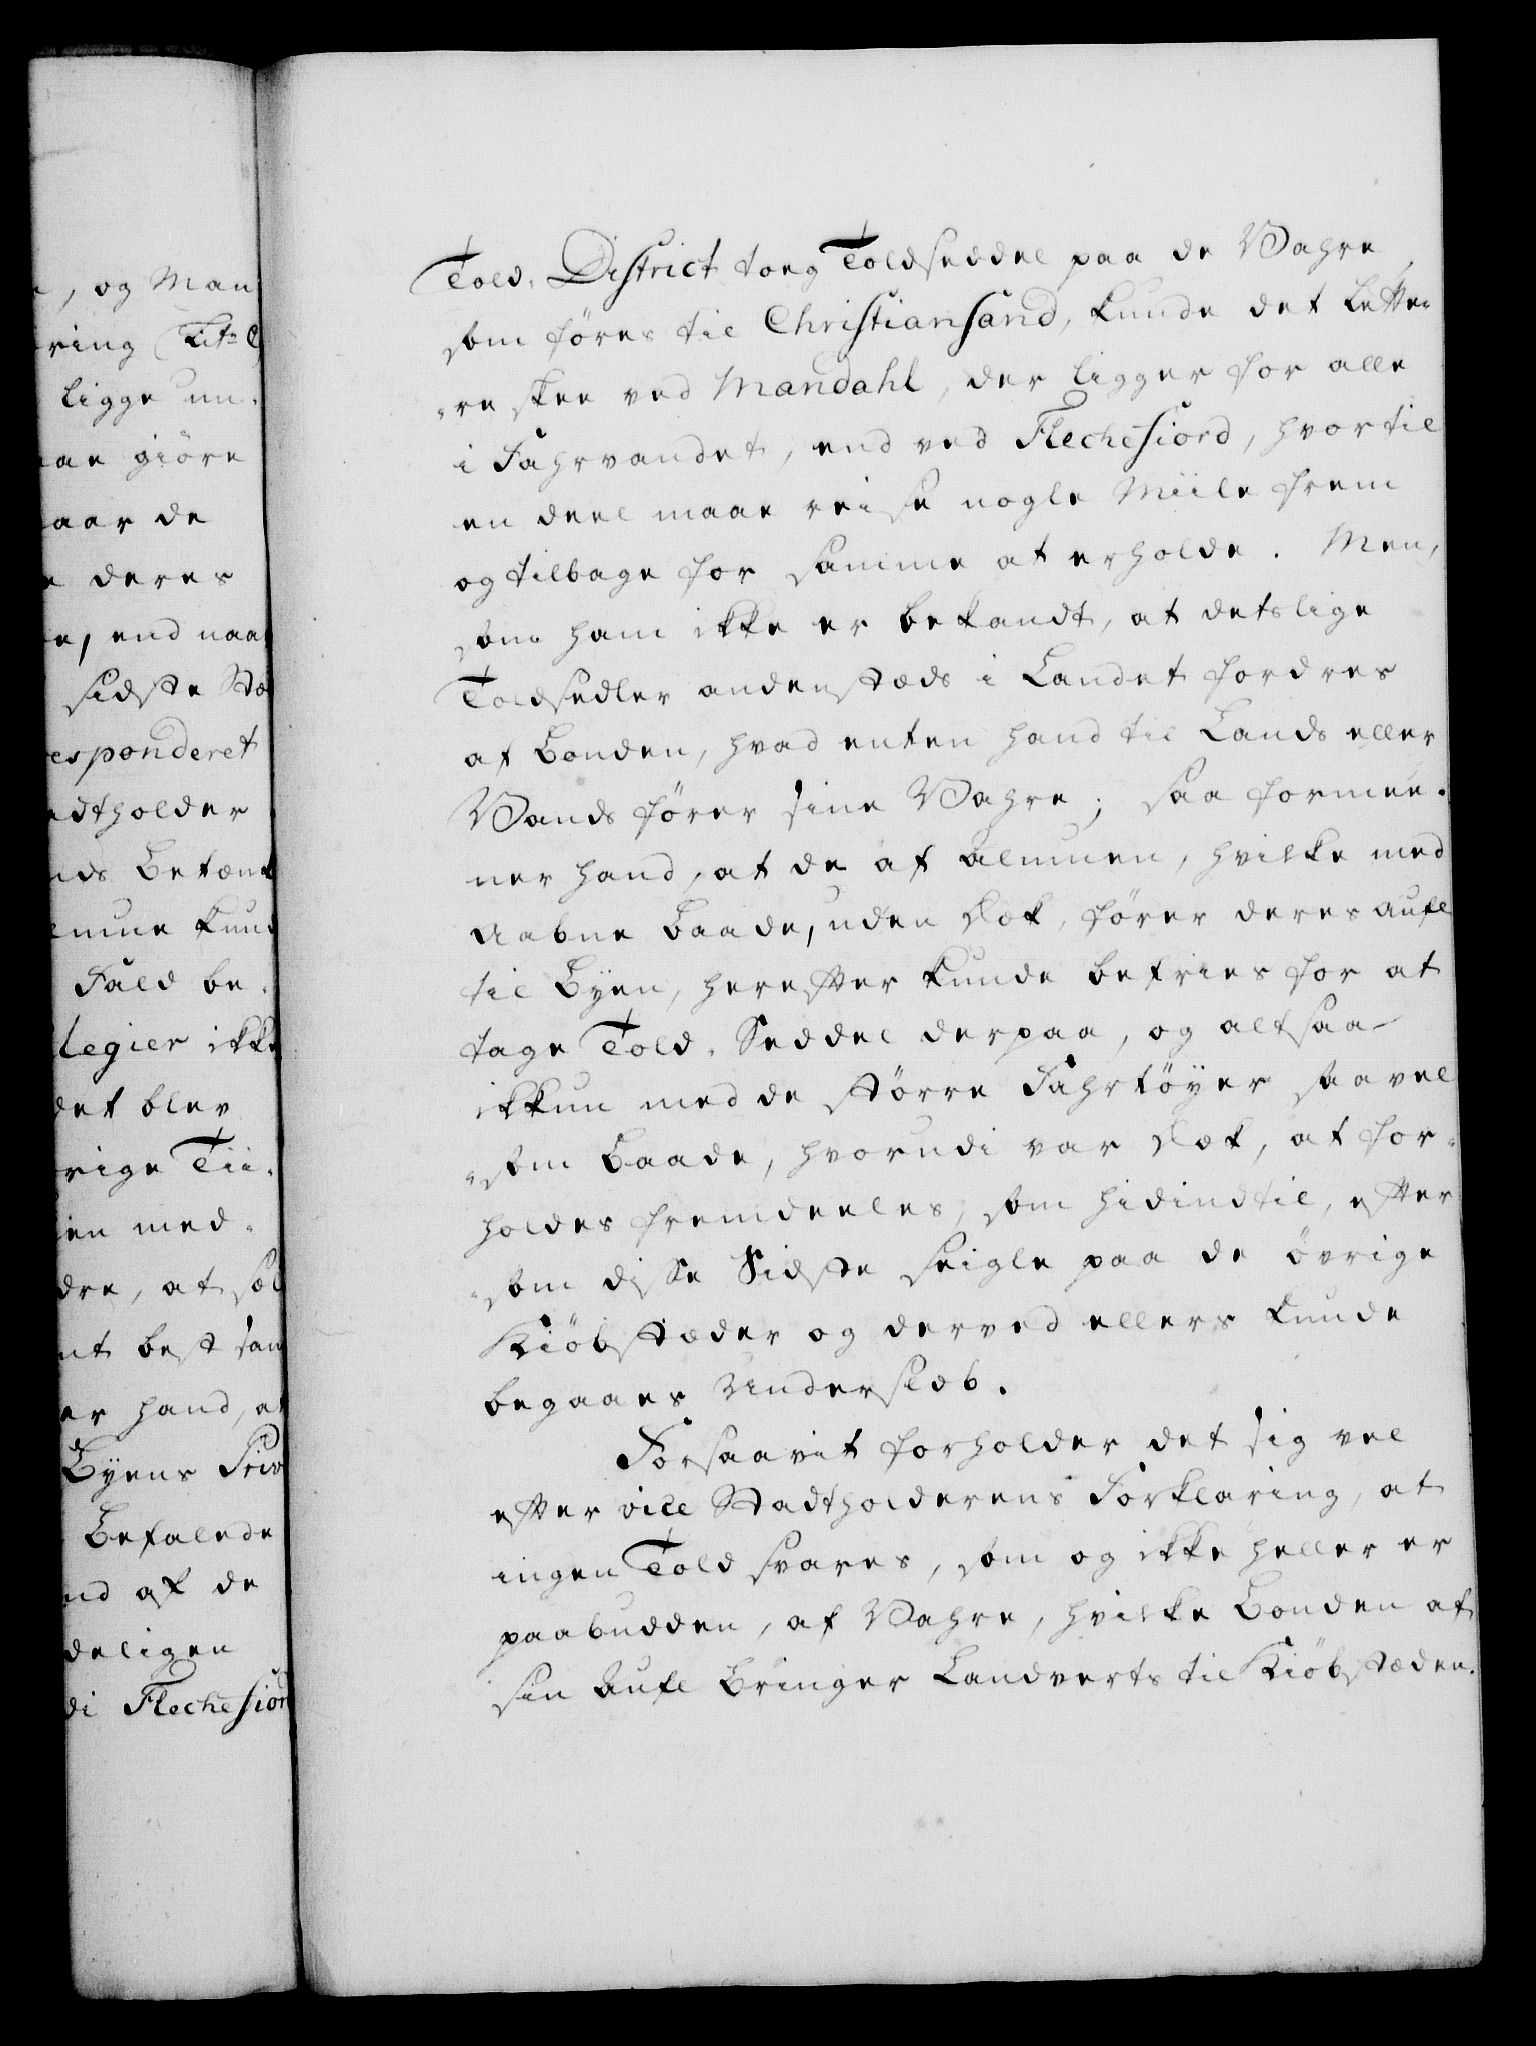 , og Man
ring Litr C
ligge un-
aae giöre
aar de
deres
e, end naar
sidste Stæ
esponderet
adtholder
nds Betænk
emue kund
Fald be-
legier ikke
det blev
rige Tii-
ien med-
dre, at sæl
nt best kan
er hand, at
Byens Priv
Befalede
nd af de
deligen
di Flechefior
Told-District toeg Toldseddel paa de Vahre,
som föres til Christiansand, kunde det lette-
re skee ved Mandahl, der ligger for alle
i Fahrvandet, end ved Flechefiord, hvortil
en deel maae reise nogle Miile frem
og tilbage for samme at erholde. Men,
som ham ikke er bekandt, at detslige
Toldsedler andenstæds i Landet fordres
af Bonden, hvad enten hand til Lands eller
Vands förer sine Vahre; saa formee-
ner hand, at de af Almuen, hvilke med
Aabne Baade, uden Dæk, förer deres Aufl
til Byen, herefter kunde befries for at
tage Told-Seddel derpaa, og altsaa
ikkun med de större Fahrtöyer saavel
som Baade, hvorudi var Dæk, at for-
holdes fremdeeles, som hidindtil, efter
som disse sidste seigle paa de övrige
Kiöbstæder og derved ellers kunde
begaaes Underslæb.
Forsaavit forholder det sig vel
efter vice Stadtholderens Forklaring, at
ingen Told svares, som og ikke heller er
paabudden, af Vahre, hvilke Bonden af
sin Aufl bringer Landverts til Kiöbstæden.